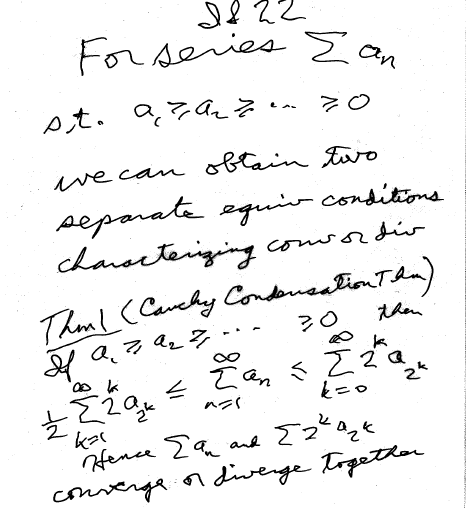 §§ 22
For series ∑ aₙ
s.t. a₁ ≥ a₂ ≥ ... ≥ 0
we can obtain two
separate equiv conditions
characterizing conv or div
Thm 1 (Cauchy Condensation Thm)
If a₁ ≥ a₂ ≥ ... ≥ 0 then
½ ∑_{k=1}^{∞} 2^k a_{2^k} ≤ ∑_{n=1}^{∞} aₙ ≤ ∑_{k=0}^{∞} 2^k a_{2^k}
Hence ∑ aₙ and ∑ 2^k a_{2^k}
converge or diverge together